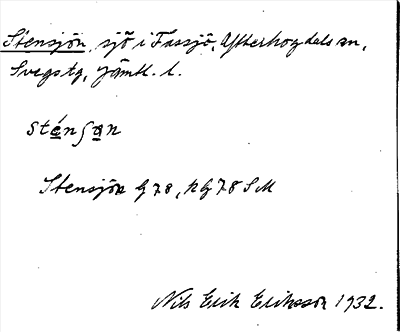 Stensjön, sjö i Fassjö, Ytterhogdals sn,
Svegs tg, Jämtl. l.
sténʃan
Stensjön G 78, hG 78 SM
Nils Erik Eriksson 1932.